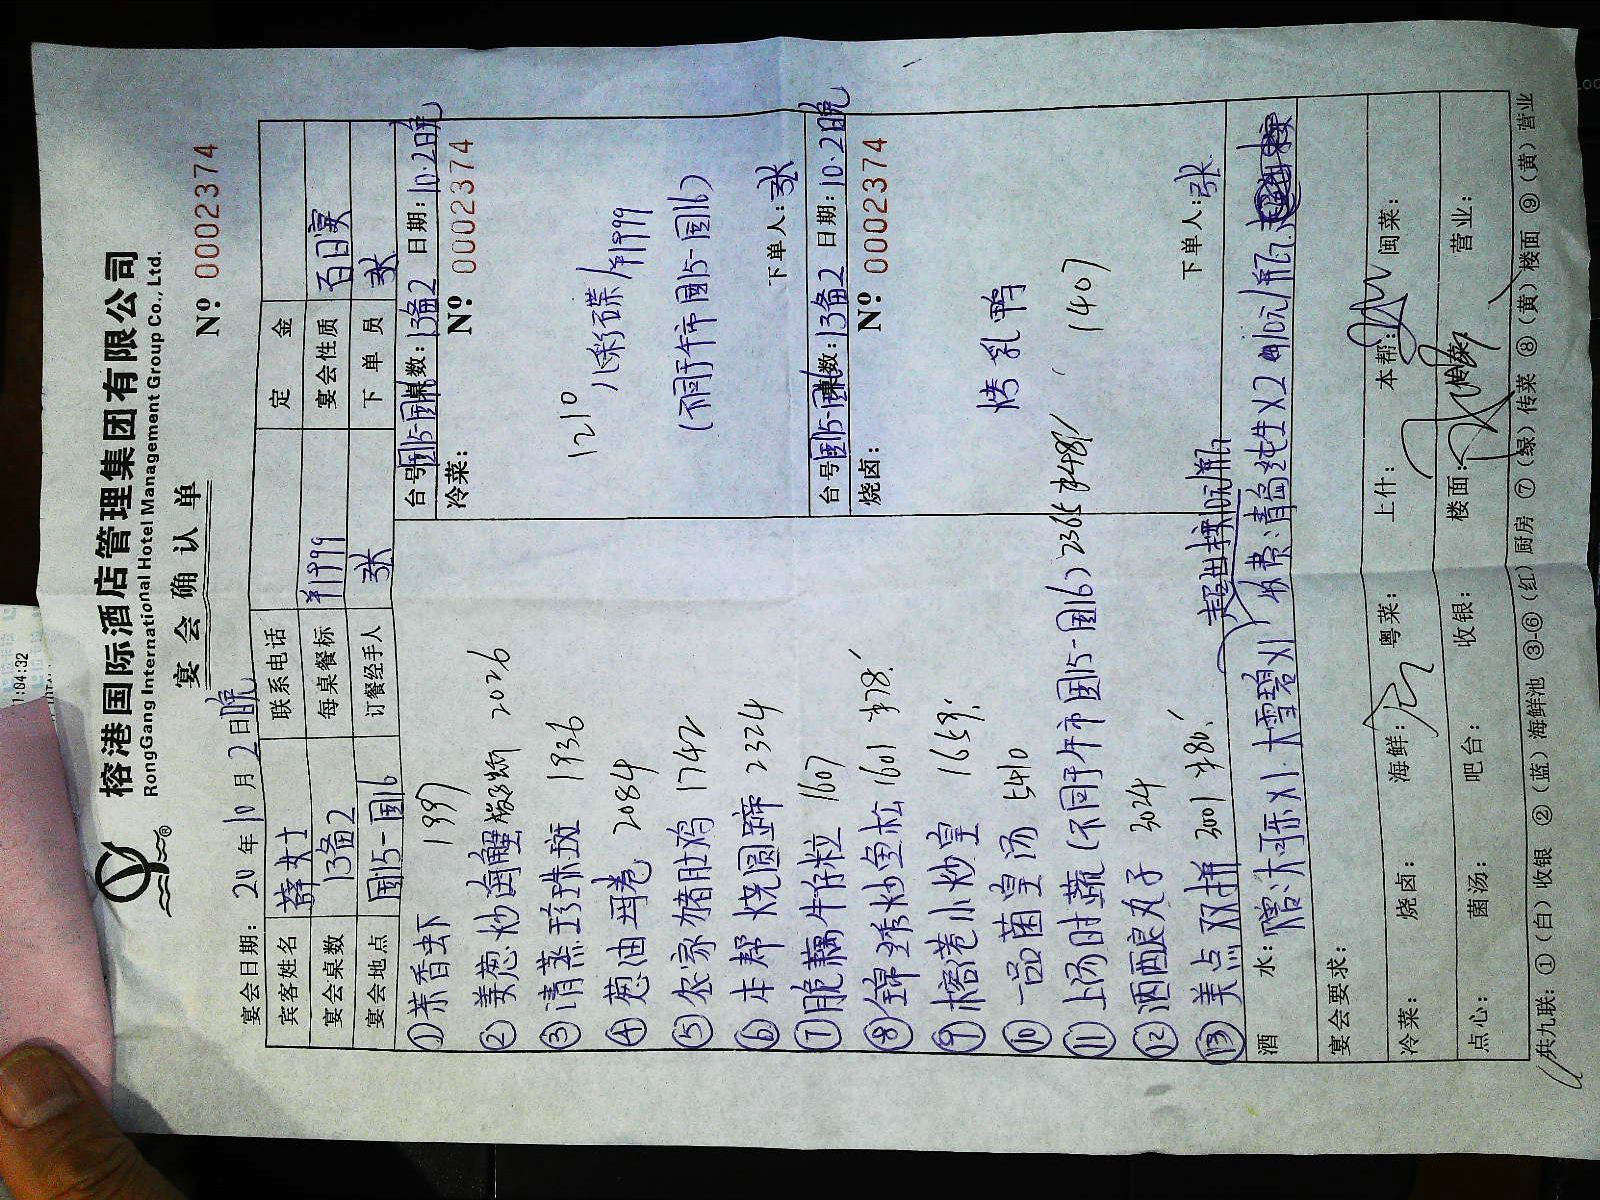 榕港国际酒店管理集团有限公司
RongGang International Hotel Management Group Co., Ltd.
宴会确认单
Nº 0002374
宴会日期: 20 年 10 月 2 日晚
宾客姓名 薛女士 联系电话 定 金
宴会桌数 13备2 每桌餐标 ¥1999 宴会性质 百日宴
宴会地点 国15-国16 订餐经手人 张 下 单 员 张
① 茶香虾 1997
② 姜葱炒海蟹 2026
③ 清蒸珍珠斑 1936
④ 葱油 2084
⑤ 农家猪肚鸡 1742
⑥ 本帮烧圆蹄 2324
⑦ 脆藕牛仔粒 1607
⑧ 锦绣炒鱼松 1601 ¥78
⑨ 榕港小炒皇 1659
⑩ 一品菌皇汤 5410
⑪ 上汤时蔬(不同于午市国15-国16) 2365 ¥48
⑫ 酒酿丸子 3024
⑬ 美点双拼 3001 ¥80
台号 国15-国16 桌数: 13备2 日期: 10.2日晚
冷菜: Nº 0002374
1210 八彩碟/¥1999
(不同于午市国15-国16)
下单人: 张
台号 国15-国16 桌数: 13备2 日期: 10.2日晚
烧卤: Nº 0002374
烤乳鸭
1407
下单人: 张
酒 水: 赠:大可乐X1.大雪碧X1 收费:青岛纯生X2
宴会要求:
冷菜: 烧卤: 海鲜: 粤菜: 上什: 本帮: 闽菜:
点心: 菌汤: 吧台: 收银: 楼面: 传菜 营业:
共九联: ①(白)收银 ②(蓝)海鲜池 ③-⑥(红)厨房 ⑦(绿)传菜 ⑧(黄)楼面 ⑨(黄)营业